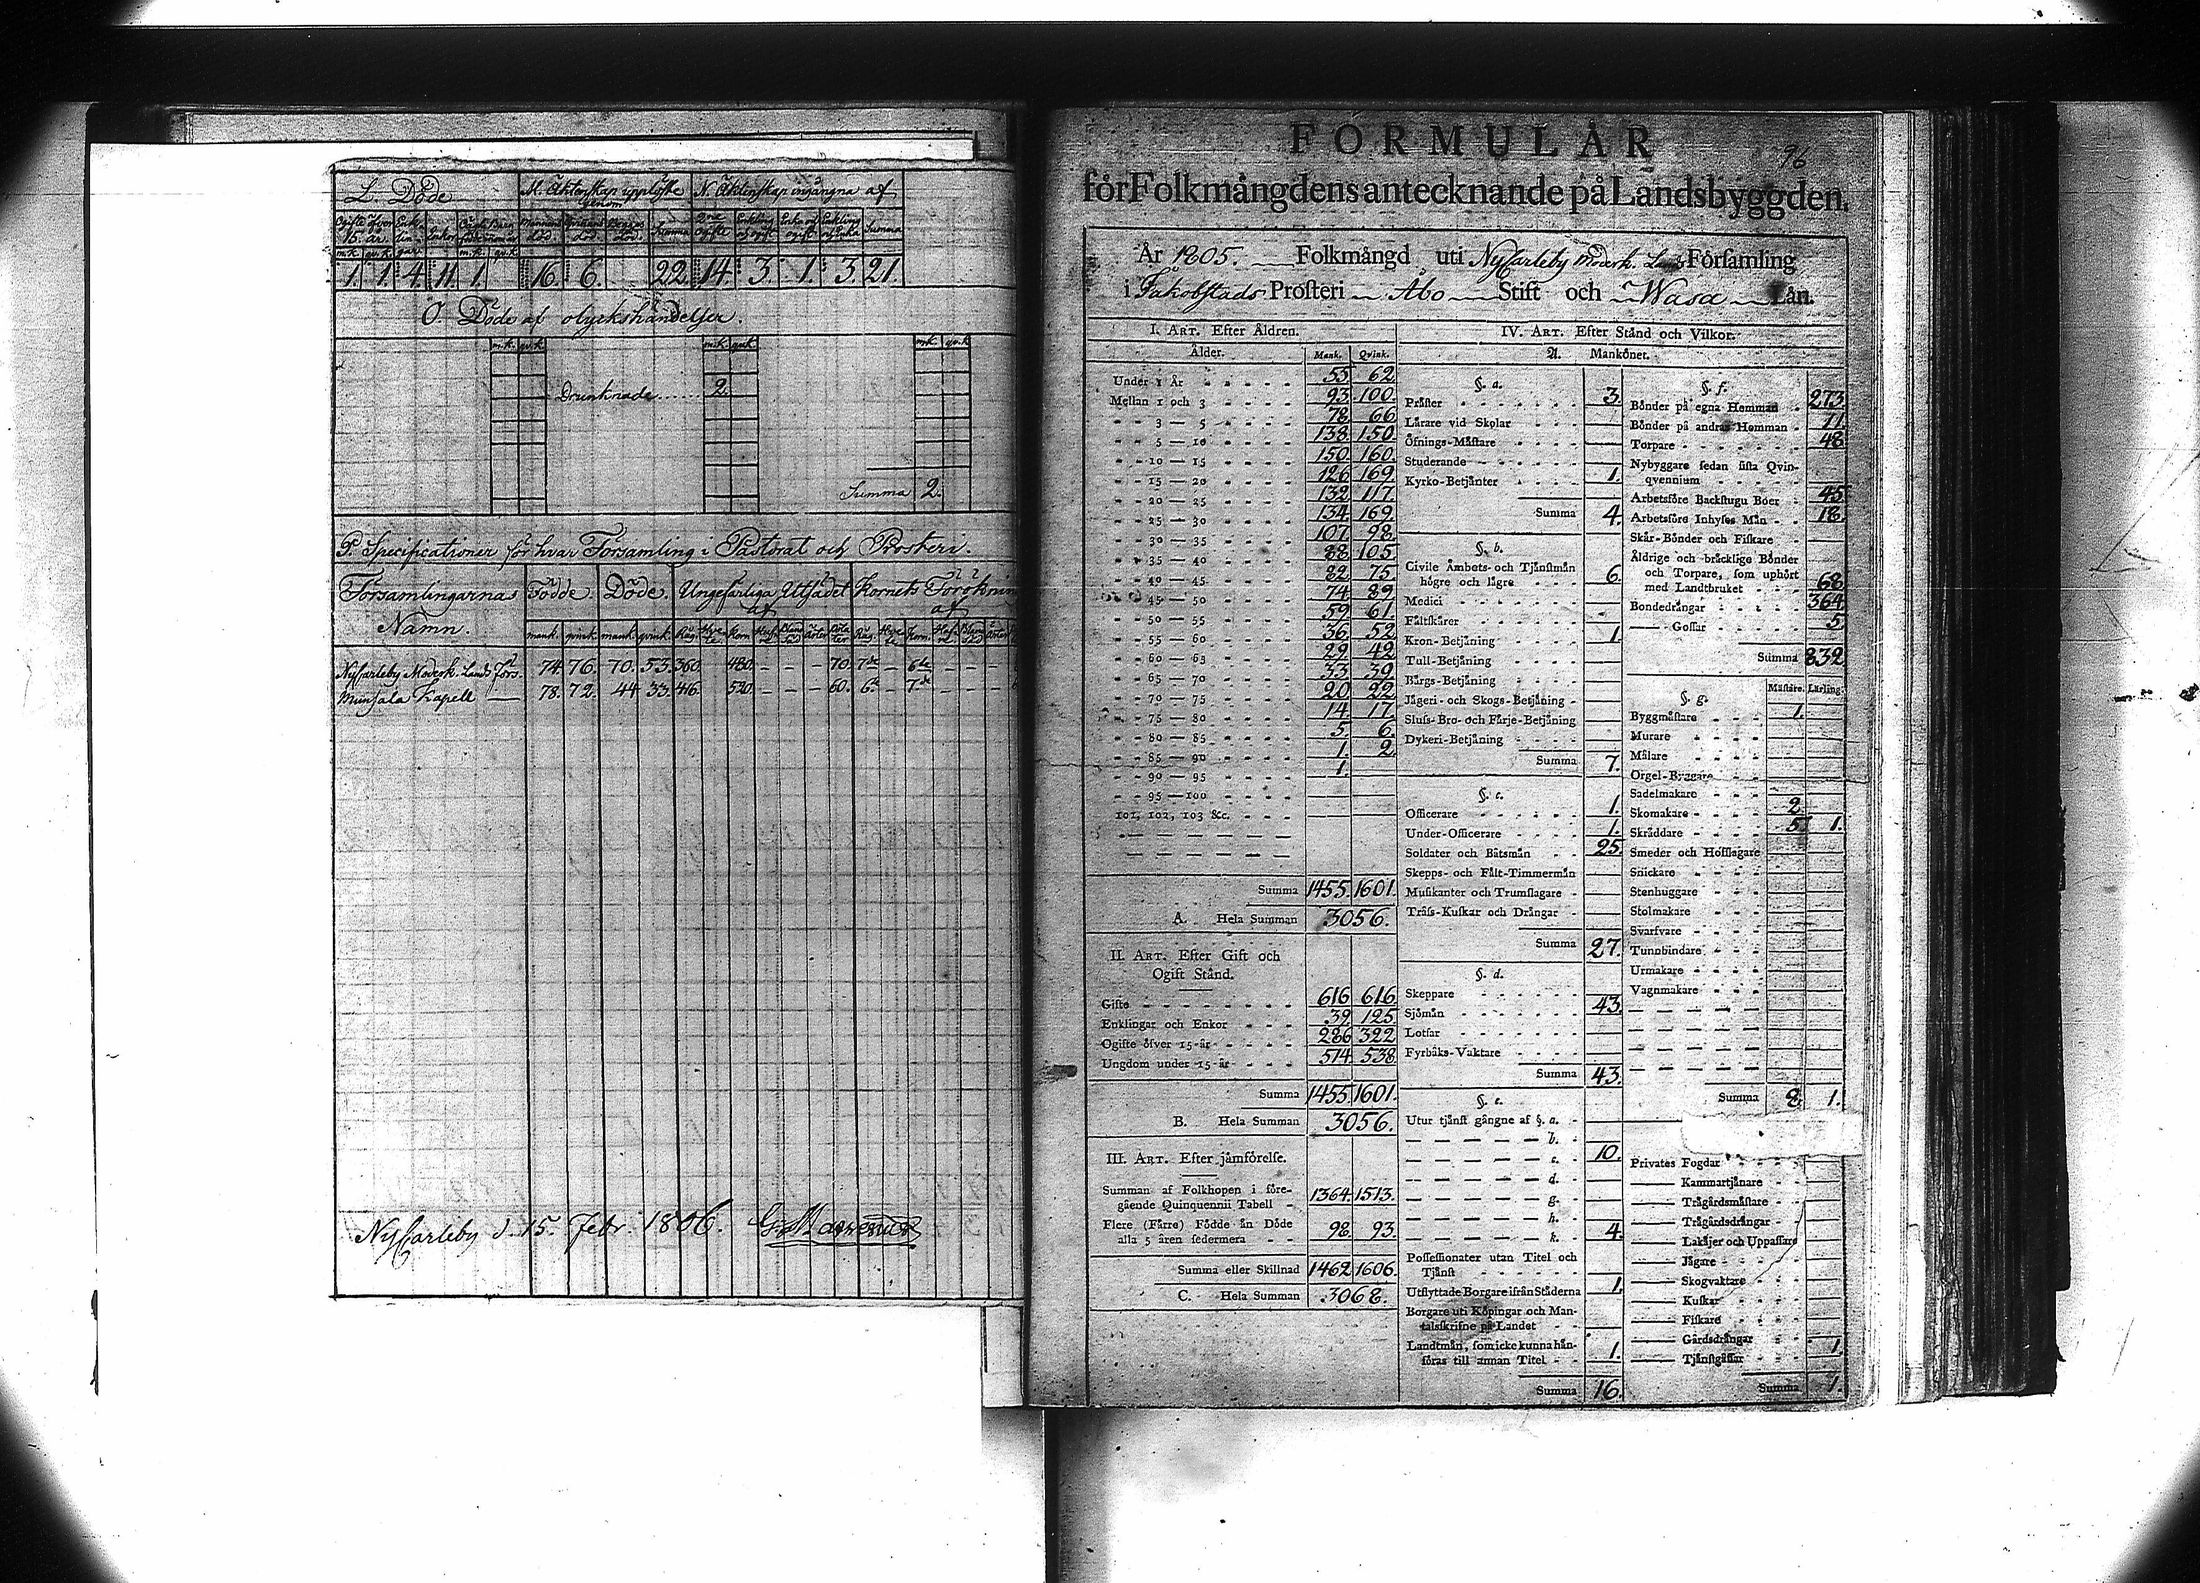 L. Döde
M. Äktenskap upplöste genom
N. Äktenskap ingångna af
m.k. qv.k.
Summa
Summa
1. 1. 4. 11. 1. 16. 6. 22. 14. 3. 1. 3. 21.
O. Döde af olyckshändelser.
m.k. qv.k. m.k. qv.k. m.k. qv.k.
Drunknade 2.
Summa 2.
P. Specificationer för hvar Församling i Pastorat och Prosteri.
Församlingarnas Namn.
Födde. Döde. Ungefärliga Utsädet af Kornets Förökning af
mank. qvink. mank. qvink. Råg. Korn.
NyCarleby Moderk. Lands förs. 74. 76. 70. 53. 360. 480. - - - 70. 7de - 6te - - -
Munsala Kapell 78. 72. 44 33. 416. 520. - - - 60. 6te - 7de - - -
NyCarleby d. 15. Febr. 1806.
96
FORMULÅR
för Folkmångdens antecknande på Landsbyggden.
År 1805. Folkmångd uti NyCarleby Moderk. Lands Församling
i Jakobstads Prosteri Åbo Stift och Wasa Lån.
I. ART. Efter Åldren.
Ålder. Mank. Qvink.
Under 1 År 55 62
Mellan 1 och 3 93. 100.
3 — 5 78. 66
5 — 10 138. 150.
10 — 15 150. 160.
15 — 20 126 169.
20 — 25 132. 117.
25 — 30 134. 169.
30 — 35 107. 98.
35 — 40 88 105.
40 — 45 82. 75.
45 — 50 74 89
50 — 55 59. 61.
55 — 60 36. 52.
60 — 65 29 42
65 — 70 33 39.
70 — 75 20 22.
75 — 80 14. 17.
80 — 85 5. 6.
85 — 90 1. 2.
90 — 95 1.
95 — 100
101, 102, 103 &c.
Summa 1455. 1601.
A. Hela Summan 3056.
II. ART. Efter Gift och
Ogift Stånd.
Gifte 616 616
Enklingar och Enkor 39 125
Ogifte öfver 15 år 286 322
Ungdom under 15 år 514. 538
Summa 1455. 1601.
B. Hela Summan 3056.
III. ART. Efter jåmförelse.
Summan af Folkhopen i före-
gående Quinquennii Tabell 1364. 1513.
Flere (Fårre) Födde ån Döde
alla 5 åren sedermera 98. 93.
Summa eller Skillnad 1462 1606.
C. Hela Summan 3068.
IV. ART. Efter Stånd och Vilkor.
A. Mankönet.
§. a.
Pråster 3.
Lårare vid Skolar
Öfnings-Måstare
Studerande
Kyrko-Betjånter 1.
Summa 4.
§. b.
Civile Åmbets- och Tjånstmån
högre och lågre 6.
Medici
Fåltskårer
Kron-Betjåning 1.
Tull-Betjåning
Bårgs-Betjåning
Jågeri- och Skogs-Betjåning
Sluss- Bro- och Fårje-Betjåning
Dykeri-Betjåning
Summa 7.
§. c.
Officerare 1.
Under-Officerare 1.
Soldater och Båtsmån 25.
Skepps- och Fålt-Timmermån
Musikanter och Trumslagare
Tråss-Kuskar och Drångar
Summa 27.
§. d.
Skeppare
Sjömån 43.
Lotsar
Fyrbåks-Vaktare
Summa 43.
§. e.
Utur tjånst gångne af §. a.
b.
c. 10.
d.
g.
h.
k. 4.
Possessionater utan Titel och
Tjånst
Utflyttade Borgare ifrån Ståderna 1.
Borgare uti Köpingar och Man-
talsskrifne på Landet
Landtmån, som icke kunna hån-
föras till annan Titel 1.
Summa 16.
§. f.
Bönder på egna Hemman 273
Bönder på andras Hemman 11.
Torpare 48
Nybyggare sedan sista Qvin-
qvennium
Arbetsföre Backstugu Boer 45
Arbetsföre Inhyses Mån 18.
Skår-Bönder och Fiskare
Åldrige och bråcklige Bönder
och Torpare, som uphört
med Landtbruket 68
Bondedrångar 364
Gossar 5.
Summa 832
§. g. Måstare. Lårling.
Byggmåstare 1.
Murare
Målare
Orgel-Byggare
Sadelmakare
Skomakare 2.
Skråddare 5. 1.
Smeder och Hofslagare
Snickare
Stenhuggare
Stolmakare
Svarfvare
Tunnbindare
Urmakare
Vagnmakare
Summa 8. 1.
Privates Fogdar
Kammartjånare
Trågårdsmåstare
Trågårdsdrångar
Lakåjer och Uppassare
Jågare
Skogvaktare
Kuskar
Fiskare
Gårdsdrångar 1.
Tjånstgåssar
Summa 1.